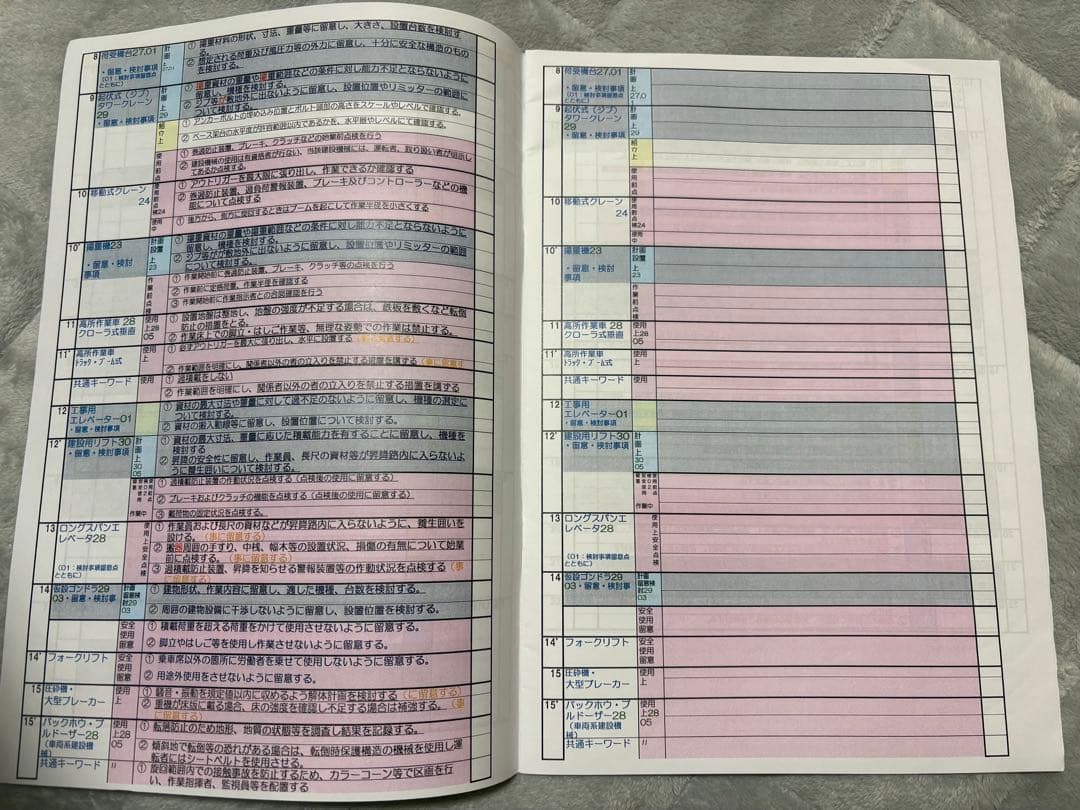 ① 揚重材料の形状、寸法、重量等に留意し、大きさ、設置台数を検討する。
8 荷受構台27.01
・留意・検討事項
(01：検討事項留意点とともに)
計画上
27.01
② 想定される荷重及び風圧力等の外力に留意し、十分に安全な構造のものを検討する。
9 起伏式（ジブ）タワークレーン29
・留意・検討事項
計画上29
① 揚重資材の重量や揚重範囲などの条件に対し能力不足とならないように留意し、機種を検討する。
② ジブ等が敷地外に出ないように留意し、設置位置やリミッターの範囲について検討する。
組立上
① アンカーボルトの埋め込み位置とボルト頭部の高さをスケールやレベルで確認する。
② ベース架台の水平度が許容範囲以内であるかを、水平器やレベルにて確認する。
使用前点
① 巻過防止装置、ブレーキ、クラッチなどの始業前点検を行う
② 建設機械の使用は有資格者が行ない、当該建設機械には、運転者、取り扱い者が明示してあるか点検する。
10 移動式クレーン24
使用前点検24
① アウトリガーを最大限に張り出し、作業できるか確認する
② 巻過防止装置、過負荷警報装置、ブレーキ及びコントローラーなどの機能について点検する
使用中
① 後方から、前方に旋回するときはブームを起こして作業半径を小さくする
10' 揚重機23
・留意・検討事項
計画設置上23
① 揚重資材の重量や揚重範囲などの条件に対し能力不足とならないように留意し、機種を検討する。
② ジブ等がが敷地外に出ないように留意し、設置位置やリミッターの範囲について検討する。
作業前点検
① 作業開始前に巻過防止装置、ブレーキ、クラッチ等の点検を行う
② 作業前に定格荷重、作業半径を確認する
③ 作業開始前に作業指示者との合図確認を行う
11 高所作業車 28
クローラ式垂直
使用上28 05
① 設置地盤は整地し、地盤の強度が不足する場合は、鉄板を敷くなど転倒防止の措置をとる。
② 作業床上での脚立・はしご作業等、無理な姿勢での作業は禁止する。
11' 高所作業車
ﾄﾗｯｸ・ﾌﾞｰﾑ式
使用上
① 必ずアウトリガーを最大に張り出し、水平に設置する
② 作業範囲を明確にし、関係者以外の者の立入りを禁止する措置を講ずる
共通キーワード
使用
① 過積載をしない
② 作業範囲を明確にし、関係者以外の者の立入りを禁止する措置を講ずる
12 工事用エレベーター01
・留意・検討事項
① 資材の最大寸法や重量に対して過不足のないように留意し、機種の選定について検討する。
② 資材の搬入動線等に留意し、設置位置について検討する。
12' 建設用リフト30
・留意・検討事項
計画上30 05
① 資材の最大寸法、重量に応じた積載能力を有することに留意し、機種を検討する
② 昇降の安全性に留意し、作業員、長尺の資材等が昇降路内に入らないように養生囲いについて検討する。
① 過積載防止装置の作動状況を点検する（点検後の使用に留意する）
② ブレーキおよびクラッチの機能を点検する（点検後の使用に留意する）
作業中
③ 載荷物の固定状況を点検する。
13 ロングスパンエレベータ28
(01：検討事項留意点とともに)
使用上安全点検
① 作業員および長尺の資材などが昇降路内に入らないように、養生囲いを設ける。(事に留意する)
② 搬器周囲の手すり、中桟、幅木等の設置状況、損傷の有無について始業前に点検する。(事に留意する)
③ 過積載防止装置、昇降を知らせる警報装置等の作動状況を点検する(事に留意する)
14 仮設ゴンドラ29
03・留意・検討事項
計画留意検討29 03
① 建物形状、作業内容に留意し、適した機種、台数を検討する。
② 周囲の建物設備に干渉しないように留意し、設置位置を検討する。
安全使用留意
① 積載荷重を超える荷重をかけて使用させないように留意する。
② 脚立やはしご等を使用し作業させないように留意する。
14' フォークリフト
安全使用留意
① 乗車席以外の箇所に労働者を乗せて使用しないように留意する。
② 用途外使用をさせないように留意する。
15 圧砕機・大型ブレーカー
使用上
① 騒音・振動を規定値以内に収めるよう解体計画を検討する(に留意する)
② 重機が床版に載る場合、床の強度を確認し不足する場合は補強する。(事に留意する)
15' バックホウ・ブルドーザー28
(車両系建設機械)
使用上28 05
① 転落防止のため地形、地質の状態等を調査し結果を記録する。
② 傾斜地で転倒等の恐れがある場合は、転倒時保護構造の機械を使用し運転者にはシートベルトを使用させる。
共通キーワード
〃
① 旋回範囲内での接触事故を防止するため、カラーコーン等で区画を行い、作業指揮者、監視員等を配置する
8 荷受構台27.01
・留意・検討事項
(01：検討事項留意点とともに)
計画上
27.0
9 起伏式（ジブ）タワークレーン29
・留意・検討事項
計画上29
組立上
使用前点
10 移動式クレーン24
使用前点検24
使用中
10' 揚重機23
・留意・検討事項
計画設置上23
作業前点検
11 高所作業車 28
クローラ式垂直
使用上28 05
11' 高所作業車
ﾄﾗｯｸ・ﾌﾞｰﾑ式
使用上
共通キーワード
使用
12 工事用エレベーター01
・留意・検討事項
12' 建設用リフト30
・留意・検討事項
計画上30 05
作業中
13 ロングスパンエレベータ28
(01：検討事項留意点とともに)
使用上安全点検
14 仮設ゴンドラ29
03・留意・検討事
計画留意検討29 03
安全使用留意
14' フォークリフト
安全使用留意
15 圧砕機・大型ブレーカー
使用上
15' バックホウ・ブルドーザー28
(車両系建設機械)
使用上28 05
共通キーワード
〃